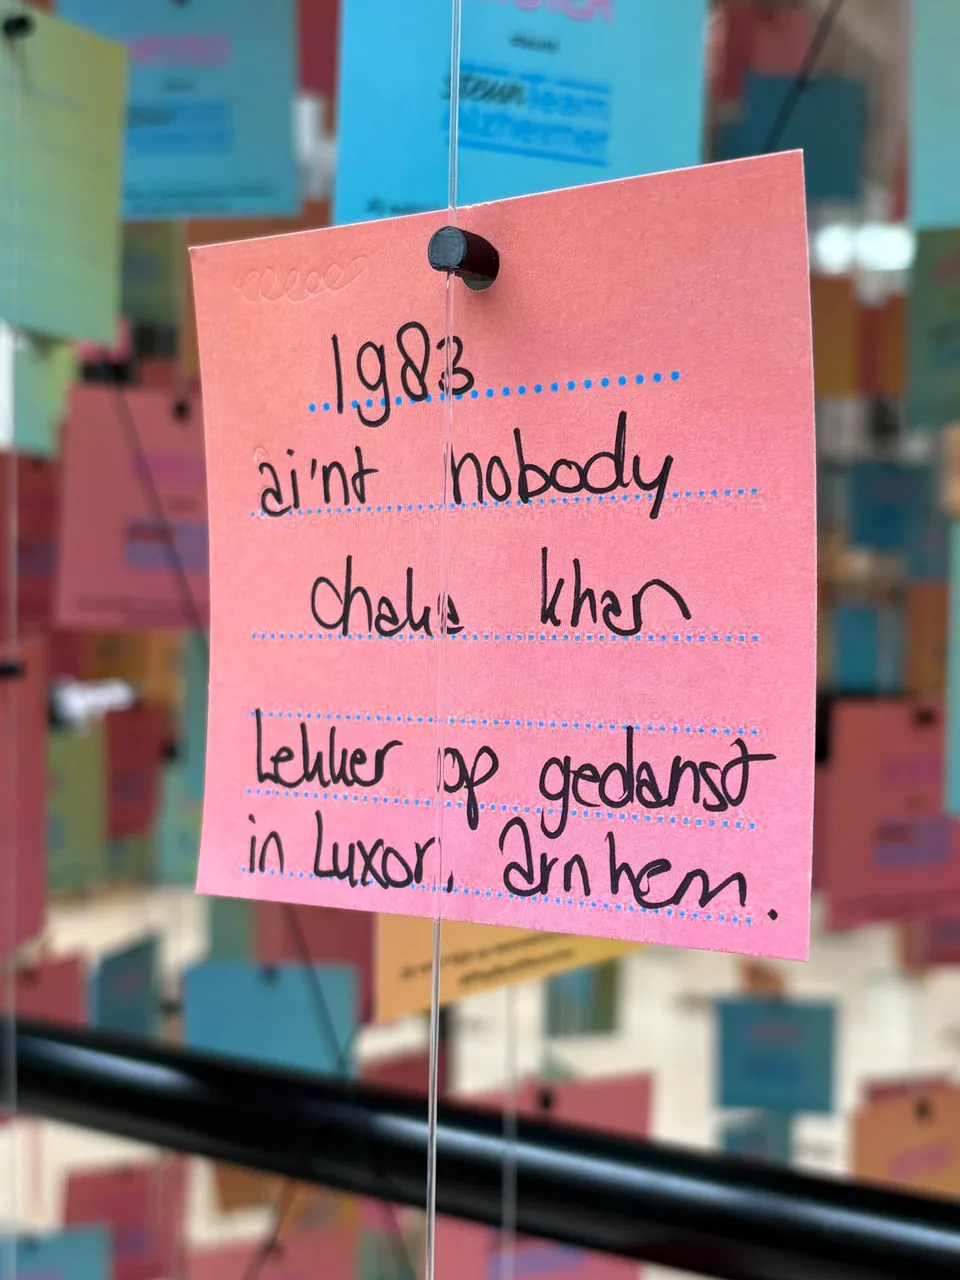 steun Team
Alzheimer
1983
ai'nt nobody
chaka khan
Lekker op gedanst
in Luxor, Arnhem.